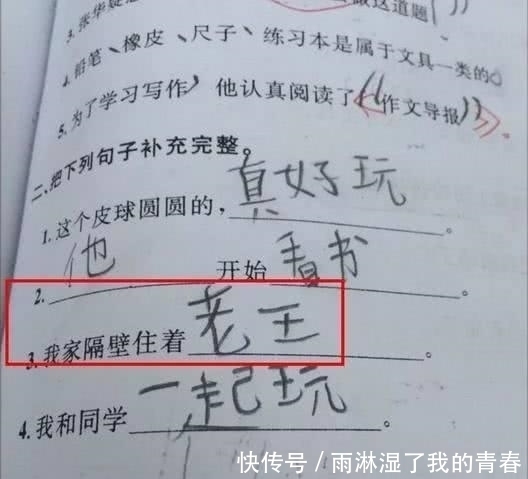 3.张华疑
做这道题
4.铅笔、橡皮、尺子、练习本是属于文具一类的。
5.为了学习写作，他认真阅读了《作文导报》。
二、把下列句子补充完整。
1.这个皮球圆圆的，真好玩。
2.他开始看书。
3.我家隔壁住着老王。
4.我和同学一起玩。
快传号/雨淋湿了我的青春